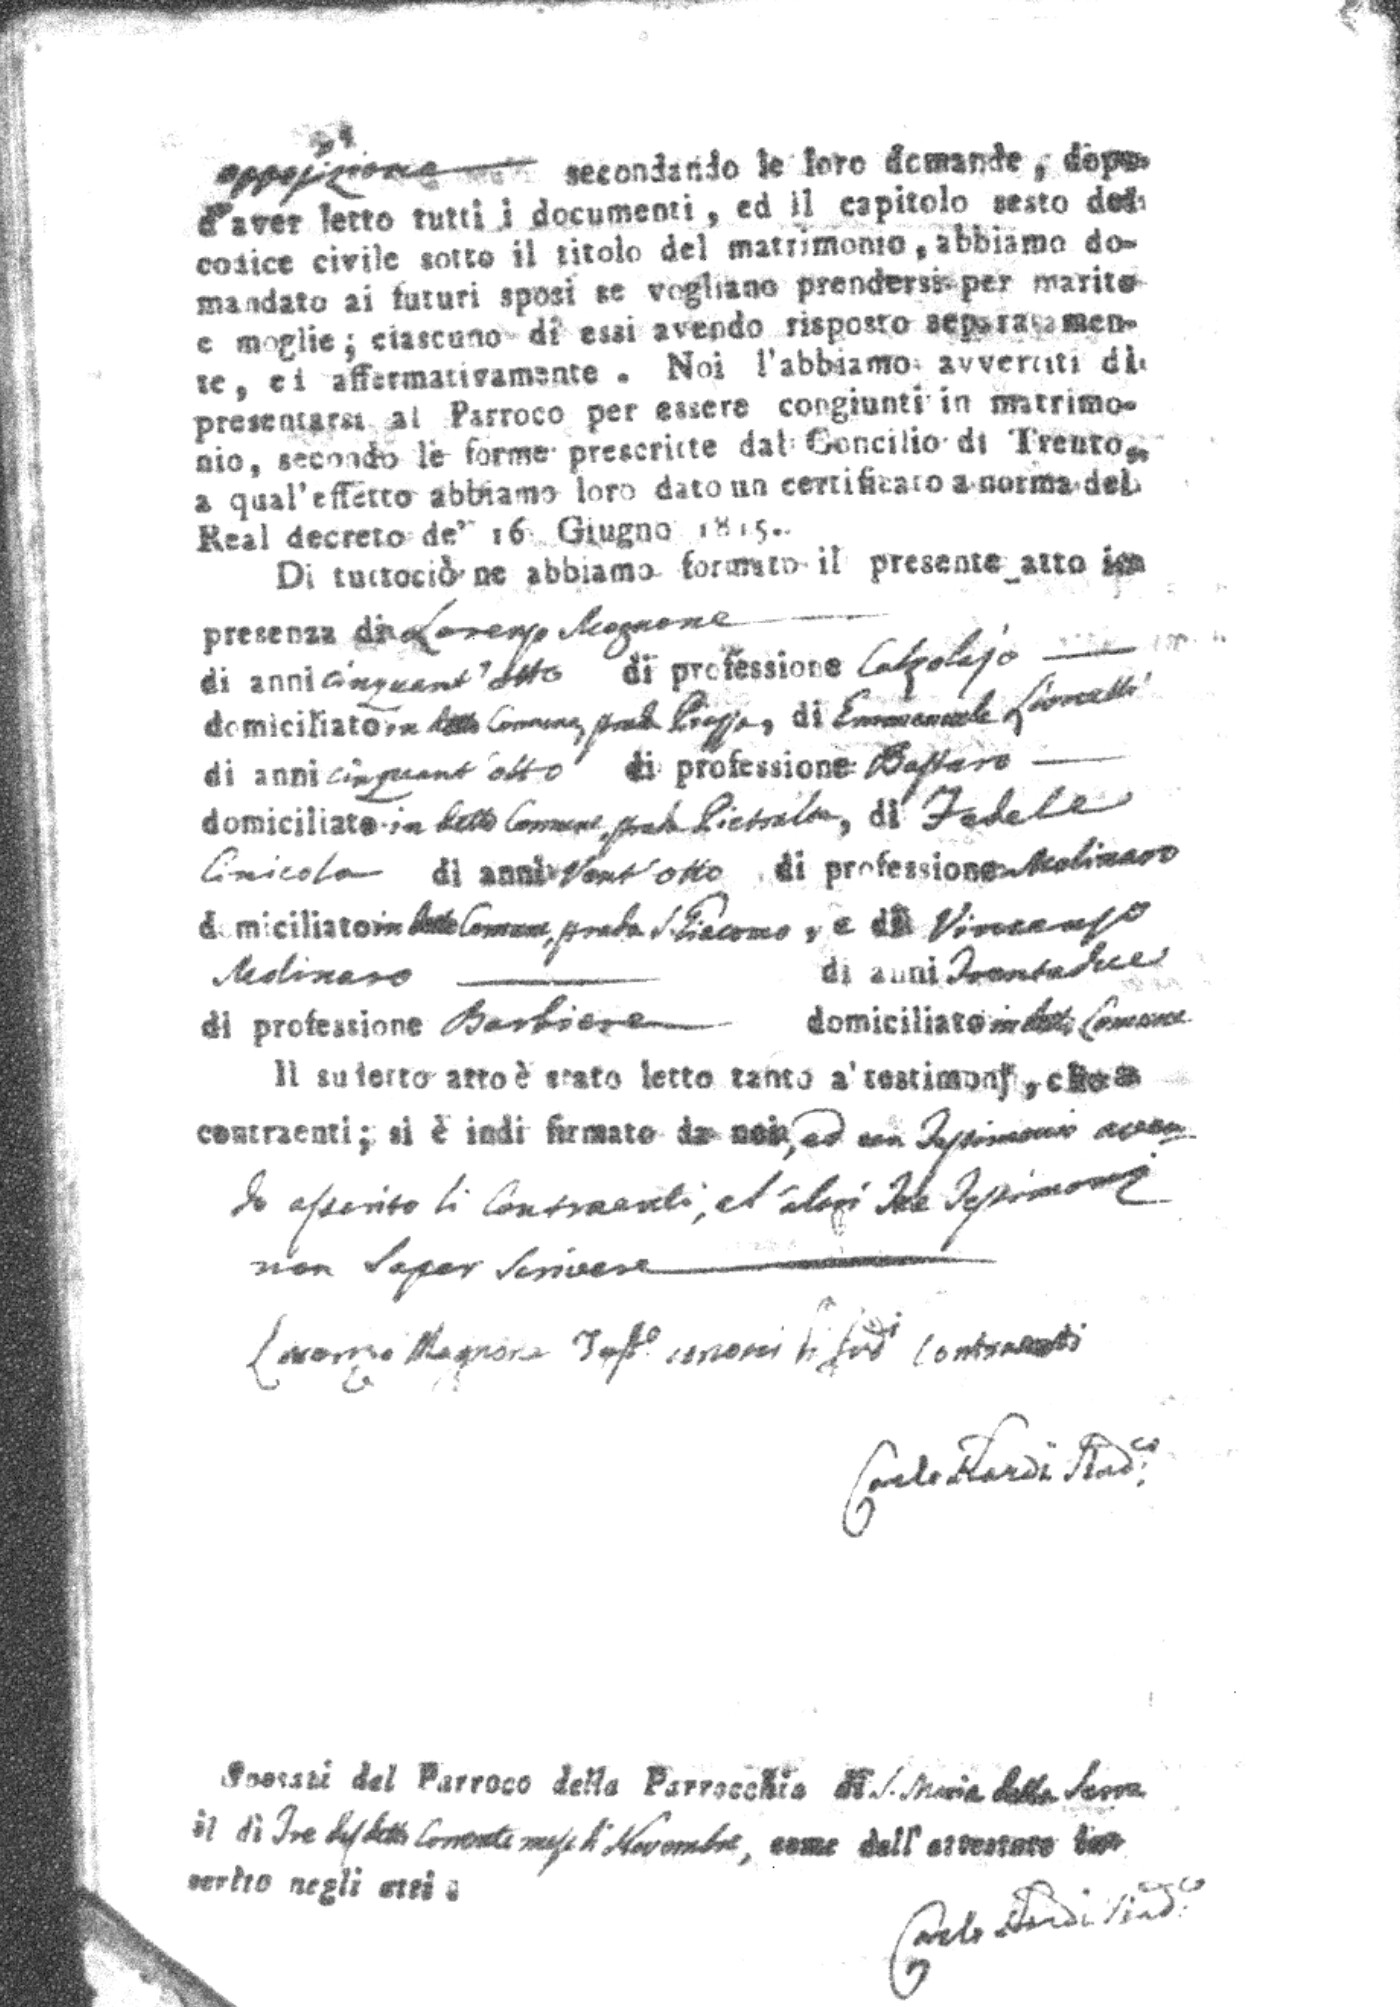 opposizione secondando le loro domande, dopo
d'aver letto tutti i documenti, ed il capitolo sesto del
codice civile sotto il titolo del matrimonio, abbiamo do-
mandato ai futuri sposi se vogliano prendersi per marito
e moglie; ciascuno di essi avendo risposto separatamen-
te, ed affermativamente. Noi l'abbiamo avvertiti di
presentarsi al Parroco per essere congiunti in matrimo-
nio, secondo le forme prescritte dal Concilio di Trento,
a qual'effetto abbiamo loro dato un certificato a norma del
Real decreto de' 16 Giugno 1815.
Di tuttociò ne abbiamo formato il presente atto in
presenza di Lorenzo Magnone
di anni cinquant'otto di professione Calzolajo
domiciliato in detto Comune, strada Piazza, di Emmanuele
di anni cinquant'otto di professione Bastaro
domiciliato in detto Comune, strada Pietralta, di Fedele
Cinicola di anni Vent'otto di professione Molinaro
domiciliato in detto Comune, strada S. Giacomo, e di Vincenzo
Molinaro di anni Trentadue
di professione Barbiere domiciliato in detto Comune
Il sudetto atto è stato letto tanto a' testimonj, che a
contraenti; si è indi firmato da noi, ed un Testimonio aven-
do asserito li Contraenti, ed altri Tre Testimonj
non Saper Scrivere
Lorenzo Magnone Test.º conosci li sud.i Contraenti
Carlo Nardi Sind.co
Sposati dal Parroco della Parrocchia di S. Maria della Serra
il dì Tre del detto Corrente mese di Novembre, come dall'attestato in-
serito negli atti.
Carlo Nardi Sind.co